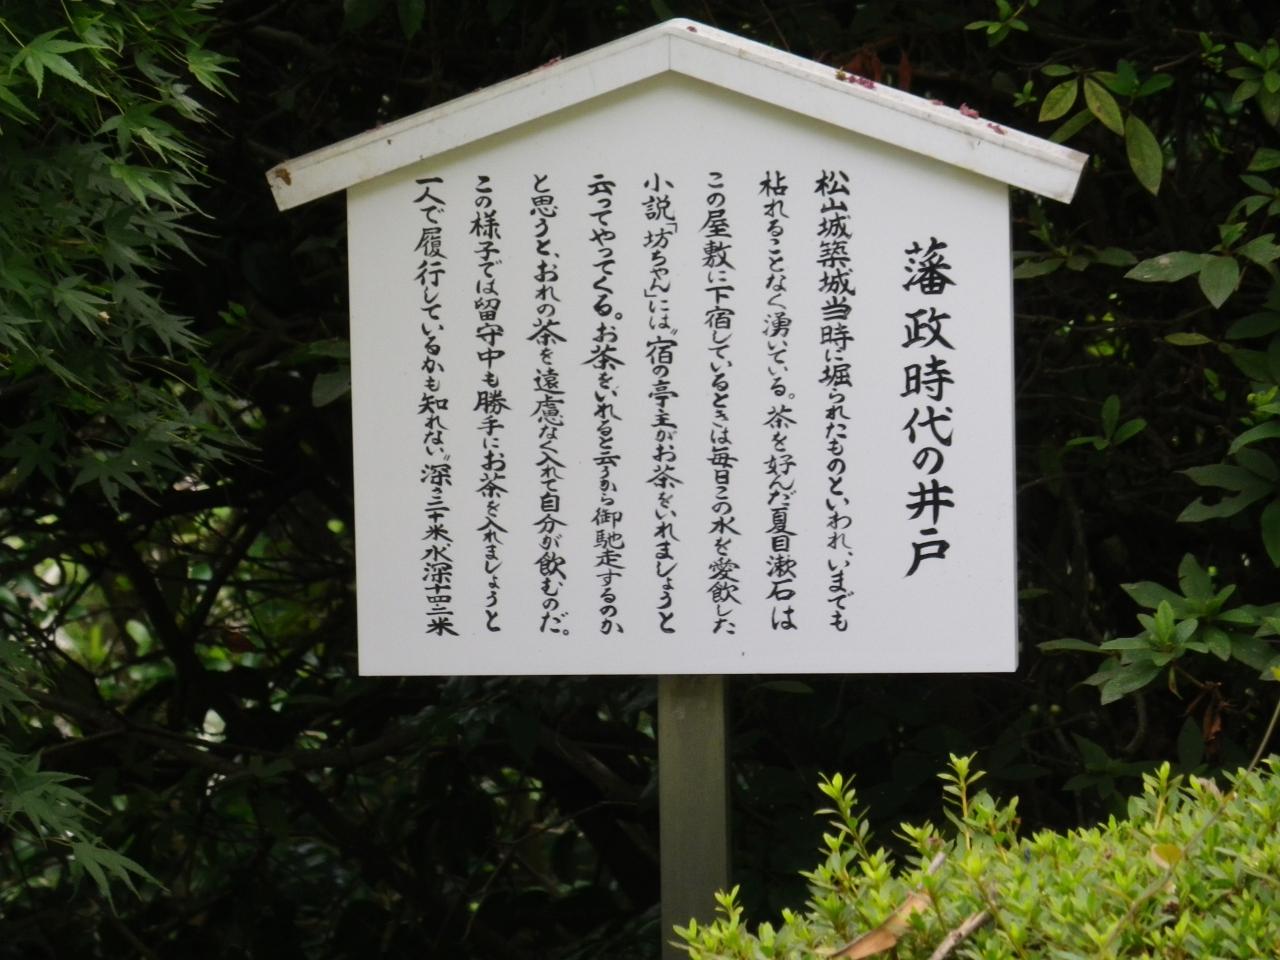 藩政時代の井戸
松山城築城当時に堀られたものといわれ、いまでも
枯れることなく湧いている。茶を好んだ夏目漱石は
この屋敷に下宿しているときは毎日この水を愛飲した
小説「坊ちゃん」には〝宿の亭主がお茶をいれましょうと
云ってやってくる。お茶をいれると云うから御馳走するのか
と思うと、おれの茶を遠慮なく入れて自分が飲むのだ。
この様子では留守中も勝手にお茶を入れましょうと
一人で履行しているかも知れない〟深さ二十米、水深十四・二米